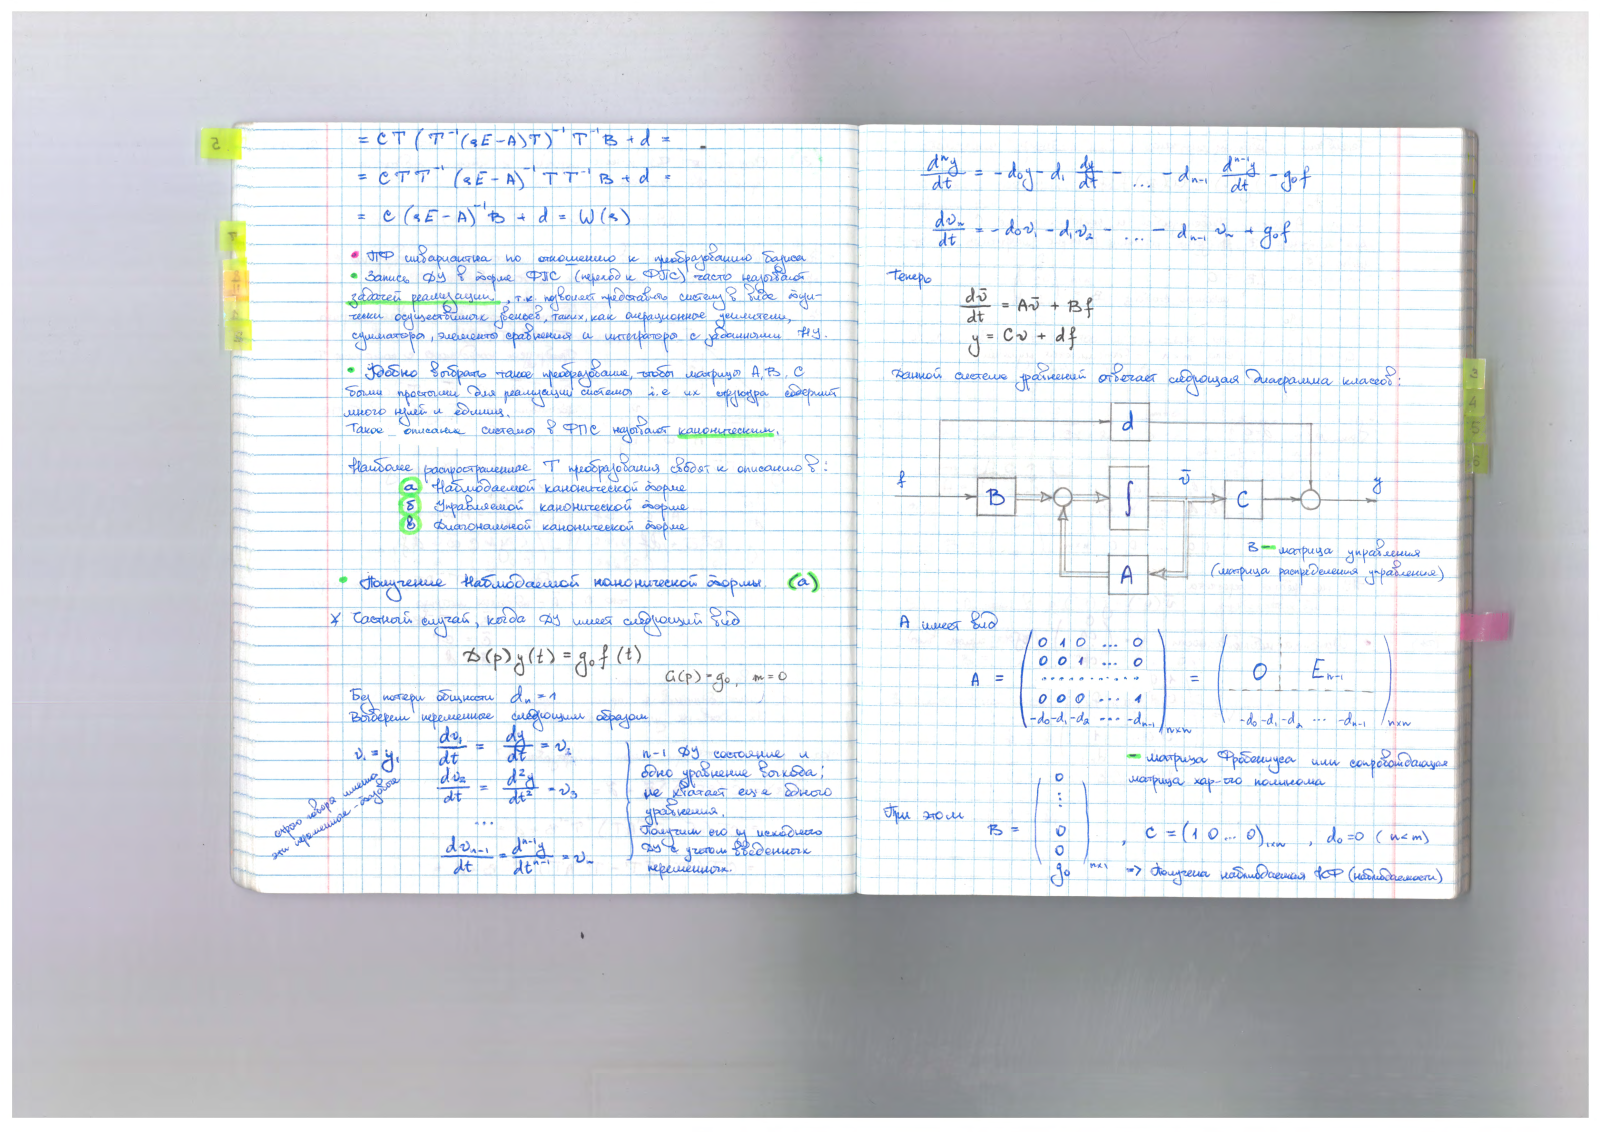 = C T (T⁻¹(sE−A)T)⁻¹ T⁻¹B + d =
= C T T⁻¹ (sE−A)⁻¹ T T⁻¹ B + d =
= C (sE−A)⁻¹B + d = W(s)
• ПФ инвариантна по отношению к преобразованию базиса
• Запись ДУ в форме ФПС (переход к ФПС) часто называют
задачей реализации, т.к. позволяет представить систему в виде
осуществимых звеньев, таких, как операционные усилители,
сумматоры, элементы сравнения и интеграторы с заданными НУ.
• Удобно выбрать такое преобразование, чтобы матрицы A, B, C
были простыми для реализации системы i.e их структура содержит
много нулей и единиц.
Такое описание системы в ФПС называют каноническим.
Наиболее распространенные T преобразования сводят к описанию в:
а Наблюдаемой канонической форме
б Управляемой канонической форме
в Диагональной канонической форме
• Получение Наблюдаемой канонической формы. (а)
Частный случай, когда ДУ имеет следующий вид
D(p)y(t) = g₀f(t)
G(p) = g₀, m=0
Без потери общности dₙ = 1
Выберем переменные следующим образом
v₁ = y, dv₁/dt = dy/dt = v₂
dv₂/dt = d²y/dt² = v₃
...
dvₙ₋₁/dt = dⁿ⁻¹y/dtⁿ⁻¹ = vₙ
строго говоря именно
эти переменные - фазовые
n-1 ДУ состояние и
одно уравнение выхода;
не хватает еще одного
уравнения.
Получим его из исходного
ДУ с учетом введенных
переменных.
dⁿy/dt = −d₀y − d₁ dy/dt − ... − dₙ₋₁ dⁿ⁻¹y/dt − g₀f
dvₙ/dt = −d₀v₁ − d₁v₂ − ... − dₙ₋₁ vₙ + g₀f
Теперь
dv̄/dt = Av̄ + Bf
y = Cv + df
Данной системе уравнений отвечает следующая Диаграмма классов:
d
f B ∫ v̄ C y
A
B – матрица управления
(матрица распределения управления)
A имеет вид
A = (0 1 0 ... 0
0 0 1 ... 0
..........
0 0 0 ... 1
-d₀ -d₁ -d₂ ... -dₙ₋₁)ₙₓₙ = (0 Eₙ₋₁
-d₀ -d₁ -d₂ ... -dₙ₋₁)ₙₓₙ
– матрица Фробениуса или сопровождающая
матрица хар-ого полинома
При этом
B = (0 ⋮ 0 0 g₀)ₙₓ₁ , C = (1 0 ... 0)₁ₓₙ , d₀=0 (n<m)
–> Получена наблюдаемая КФ (наблюдаемости)
5
7
3
4
5
6